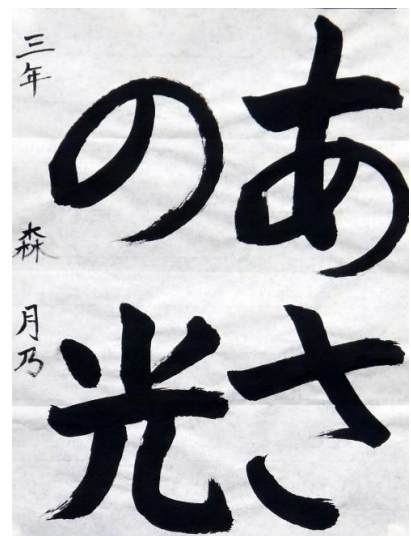 あさ
の光
三年 森 月乃